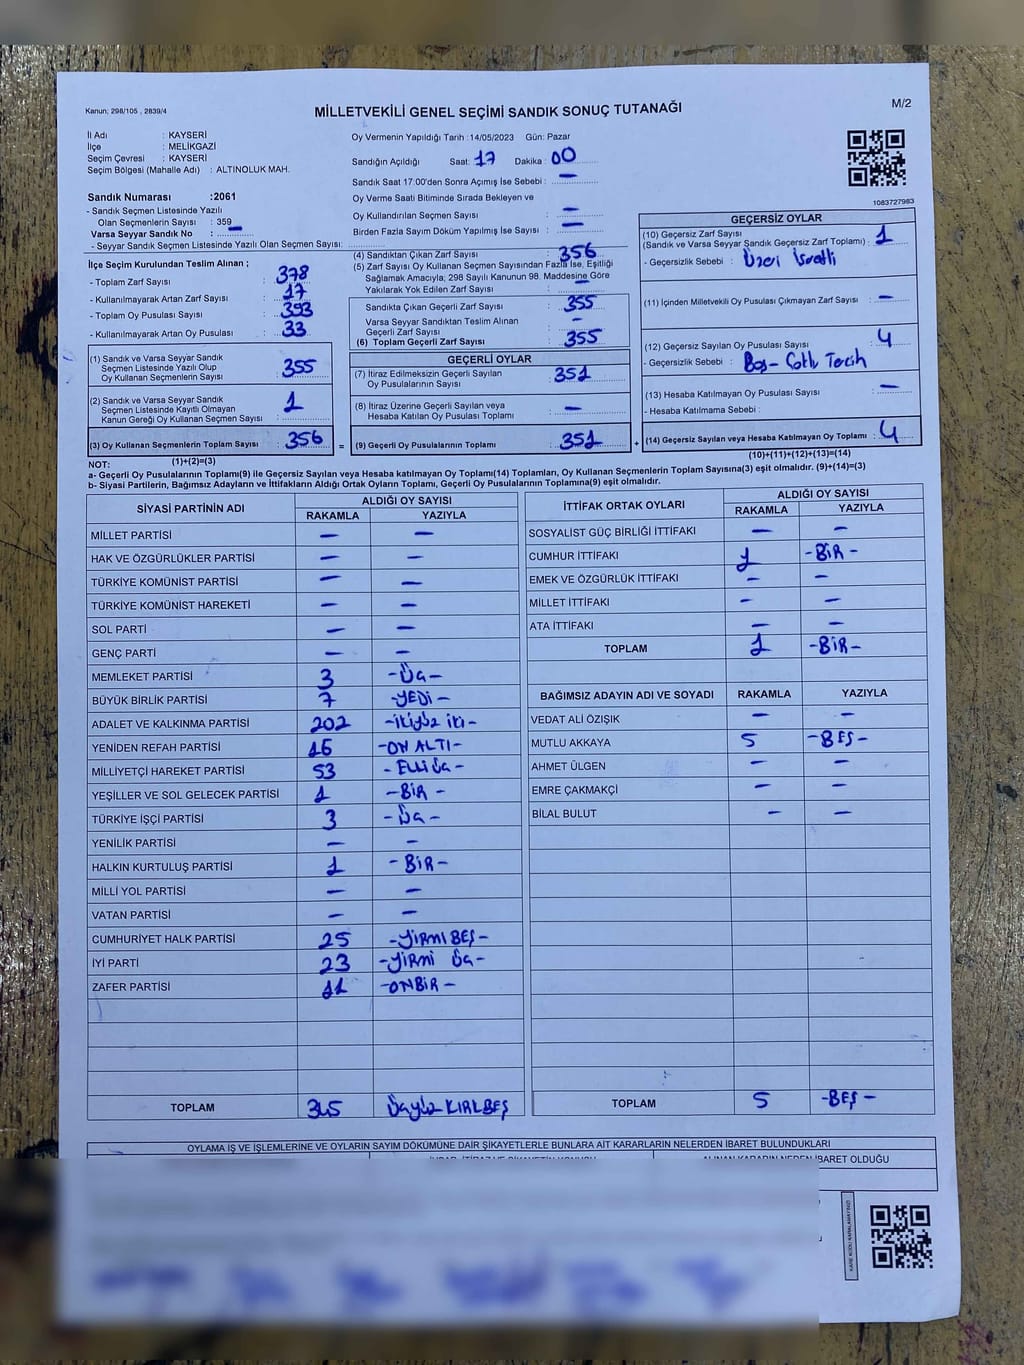 Kanun; 298/105 , 2839/4
MİLLETVEKİLİ GENEL SEÇİMİ SANDIK SONUÇ TUTANAĞI
M/2
İl Adı : KAYSERİ
İlçe : MELİKGAZİ
Seçim Çevresi : KAYSERİ
Seçim Bölgesi (Mahalle Adı) : ALTINOLUK MAH.
Sandık Numarası :2061
- Sandık Seçmen Listesinde Yazılı
Olan Seçmenlerin Sayısı : 359
Varsa Seyyar Sandık No : –
- Seyyar Sandık Seçmen Listesinde Yazılı Olan Seçmen Sayısı:
Oy Vermenin Yapıldığı Tarih :14/05/2023 Gün: Pazar
Sandığın Açıldığı Saat: 17 Dakika : 00
Sandık Saat 17:00'den Sonra Açılmış İse Sebebi : –
Oy Verme Saati Bitiminde Sırada Bekleyen ve
Oy Kullandırılan Seçmen Sayısı –
Birden Fazla Sayım Döküm Yapılmış İse Sayısı : –
1083727983
İlçe Seçim Kurulundan Teslim Alınan ;
- Toplam Zarf Sayısı : 378
- Kullanılmayarak Artan Zarf Sayısı : 17
- Toplam Oy Pusulası Sayısı : 393
- Kullanılmayarak Artan Oy Pusulası : 33
(1) Sandık ve Varsa Seyyar Sandık
Seçmen Listesinde Yazılı Olup
Oy Kullanan Seçmenlerin Sayısı : 355
(2) Sandık ve Varsa Seyyar Sandık
Seçmen Listesinde Kayıtlı Olmayan
Kanun Gereği Oy Kullanan Seçmen Sayısı : 1
(3) Oy Kullanan Seçmenlerin Toplam Sayısı : 356 =
(1)+(2)=(3)
(4) Sandıktan Çıkan Zarf Sayısı : 356
(5) Zarf Sayısı Oy Kullanan Seçmen Sayısından Fazla İse, Eşitliği
Sağlamak Amacıyla; 298 Sayılı Kanunun 98. Maddesine Göre
Yakılarak Yok Edilen Zarf Sayısı : –
Sandıkta Çıkan Geçerli Zarf Sayısı : 355
Varsa Seyyar Sandıktan Teslim Alınan
Geçerli Zarf Sayısı : –
(6) Toplam Geçerli Zarf Sayısı : 355
GEÇERLİ OYLAR
(7) İtiraz Edilmeksizin Geçerli Sayılan
Oy Pusulalarının Sayısı : 351
(8) İtiraz Üzerine Geçerli Sayılan veya
Hesaba Katılan Oy Pusulası Toplamı : –
(9) Geçerli Oy Pusulalarının Toplamı : 351 +
GEÇERSİZ OYLAR
(10) Geçersiz Zarf Sayısı
(Sandık ve Varsa Seyyar Sandık Geçersiz Zarf Toplamı) : 1
- Geçersizlik Sebebi : Üzeri İsaretli
(11) İçinden Milletvekili Oy Pusulası Çıkmayan Zarf Sayısı : –
(12) Geçersiz Sayılan Oy Pusulası Sayısı : 4
- Geçersizlik Sebebi : Boş - Çoklu Tercih
(13) Hesaba Katılmayan Oy Pusulası Sayısı : –
- Hesaba Katılmama Sebebi :
(14) Geçersiz Sayılan veya Hesaba Katılmayan Oy Toplamı : 4
(10)+(11)+(12)+(13)=(14)
NOT:
a- Geçerli Oy Pusulalarının Toplamı(9) ile Geçersiz Sayılan veya Hesaba katılmayan Oy Toplamı(14) Toplamları, Oy Kullanan Seçmenlerin Toplam Sayısına(3) eşit olmalıdır. (9)+(14)=(3)
b- Siyasi Partilerin, Bağımsız Adayların ve İttifakların Aldığı Ortak Oyların Toplamı, Geçerli Oy Pusulalarının Toplamına(9) eşit olmalıdır.
SİYASİ PARTİNİN ADI ALDIĞI OY SAYISI
RAKAMLA YAZIYLA
MİLLET PARTİSİ – –
HAK VE ÖZGÜRLÜKLER PARTİSİ – –
TÜRKİYE KOMÜNİST PARTİSİ – –
TÜRKİYE KOMÜNİST HAREKETİ – –
SOL PARTİ – –
GENÇ PARTİ – –
MEMLEKET PARTİSİ 3 -Üç-
BÜYÜK BİRLİK PARTİSİ 7 -YEDİ-
ADALET VE KALKINMA PARTİSİ 202 -İkiyüz iki-
YENİDEN REFAH PARTİSİ 16 -ON ALTI-
MİLLİYETÇİ HAREKET PARTİSİ 53 -Elli üç-
YEŞİLLER VE SOL GELECEK PARTİSİ 1 -BİR-
TÜRKİYE İŞÇİ PARTİSİ 3 -Üç-
YENİLİK PARTİSİ – –
HALKIN KURTULUŞ PARTİSİ 1 -BİR-
MİLLİ YOL PARTİSİ – –
VATAN PARTİSİ – –
CUMHURİYET HALK PARTİSİ 25 -YİRMİ BEŞ-
İYİ PARTİ 23 -YİRMİ Üç-
ZAFER PARTİSİ 11 -ONBİR-
TOPLAM 345 ÜçYüz KIRKBEŞ
İTTİFAK ORTAK OYLARI ALDIĞI OY SAYISI
RAKAMLA YAZIYLA
SOSYALİST GÜÇ BİRLİĞİ İTTİFAKI – –
CUMHUR İTTİFAKI 1 -BİR-
EMEK VE ÖZGÜRLÜK İTTİFAKI – –
MİLLET İTTİFAKI – –
ATA İTTİFAKI – –
TOPLAM 1 -BİR-
BAĞIMSIZ ADAYIN ADI VE SOYADI RAKAMLA YAZIYLA
VEDAT ALİ ÖZIŞIK – –
MUTLU AKKAYA 5 -BEŞ-
AHMET ÜLGEN – –
EMRE ÇAKMAKÇİ – –
BİLAL BULUT – –
TOPLAM 5 -BEŞ-
OYLAMA İŞ VE İŞLEMLERİNE VE OYLARIN SAYIM DÖKÜMÜNE DAİR ŞİKAYETLERLE BUNLARA AİT KARARLARIN NELERDEN İBARET BULUNDUKLARI
ALINAN KARARIN NEDEN İBARET OLDUĞU